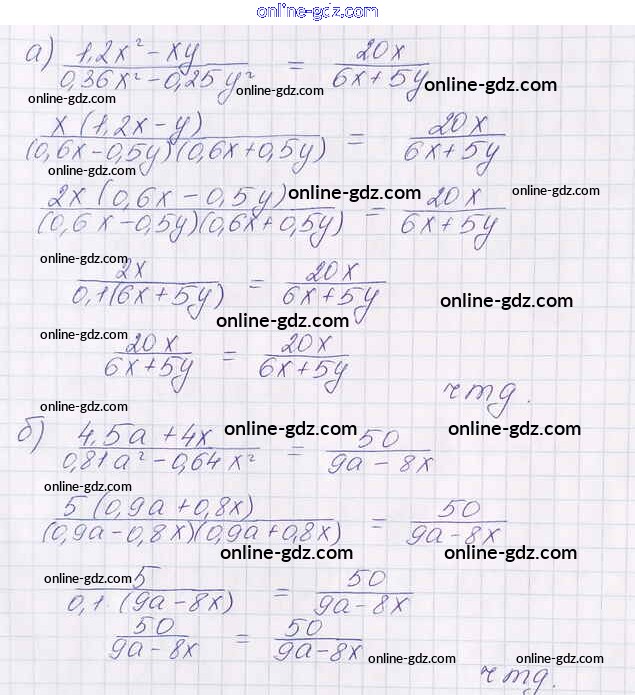 online-gdz.com
а) (1,2x² - xy)/(0,36x² - 0,25y²) = 20x/(6x + 5y)
online-gdz.com online-gdz.com online-gdz.com
x(1,2x - y)/((0,6x - 0,5y)(0,6x + 0,5y)) = 20x/(6x + 5y)
online-gdz.com online-gdz.com
2x(0,6x - 0,5y)/((0,6x - 0,5y)(0,6x + 0,5y)) = 20x/(6x + 5y)
online-gdz.com online-gdz.com
online-gdz.com
2x/(0,1(6x + 5y)) = 20x/(6x + 5y)
online-gdz.com
online-gdz.com
online-gdz.com
20x/(6x + 5y) = 20x/(6x + 5y)
чтд.
online-gdz.com
б) (4,5a + 4x)/(0,81a² - 0,64x²) = 50/(9a - 8x)
online-gdz.com online-gdz.com
online-gdz.com
5(0,9a + 0,8x)/((0,9a - 0,8x)(0,9a + 0,8x)) = 50/(9a - 8x)
online-gdz.com online-gdz.com
online-gdz.com
5/(0,1·(9a - 8x)) = 50/(9a - 8x)
50/(9a - 8x) = 50/(9a - 8x)
online-gdz.com online-gdz.com
чтд.